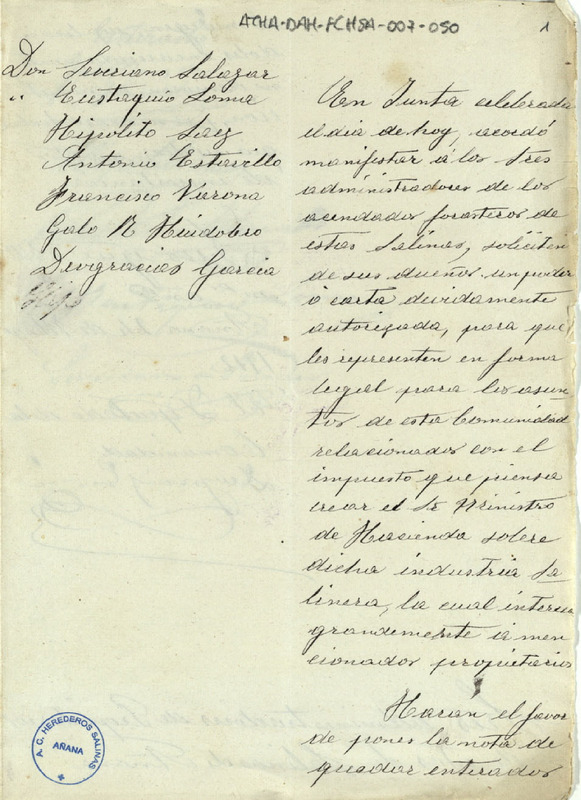 ATHA-DAH-FCHSA-007-050
1
Don Severiano Salazar
" Eustaquio Loma
Hipólito Saez
Antonio Estavillo
Francisco Varona
Galo R Huidobro
Deogracias Garcia
Hijo
En Junta celebrada
el dia de hoy, acordó
manifestar á los tres
administradores de los
acendados forasteros de
estas Salinas, soliciten
de sus dueños un poder
ó carta devidamente
autorizada, para que
les representen en forma
legal para los asun-
tos de esta Comunidad
relacionados con el
impuesto que piensa
crear el Sr Ministro
de Hacienda sobre
dicha industria Sa-
linera, la cual interesa
grandemente á men-
cionados propietarios
Haran el favor
de poner la nota de
quedar enterados
A. C. HEREDEROS SALINAS
AÑANA